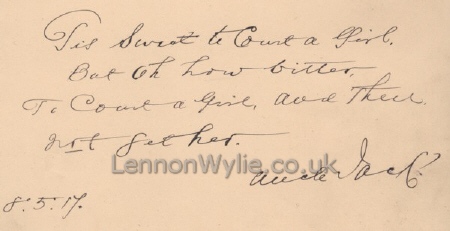 Tis Sweet to Court a Girl,
But Oh how bitter,
To Court a Girl, and then
not get her.
LennonWylie.co.uk
Uncle Jack.
8.5.17.